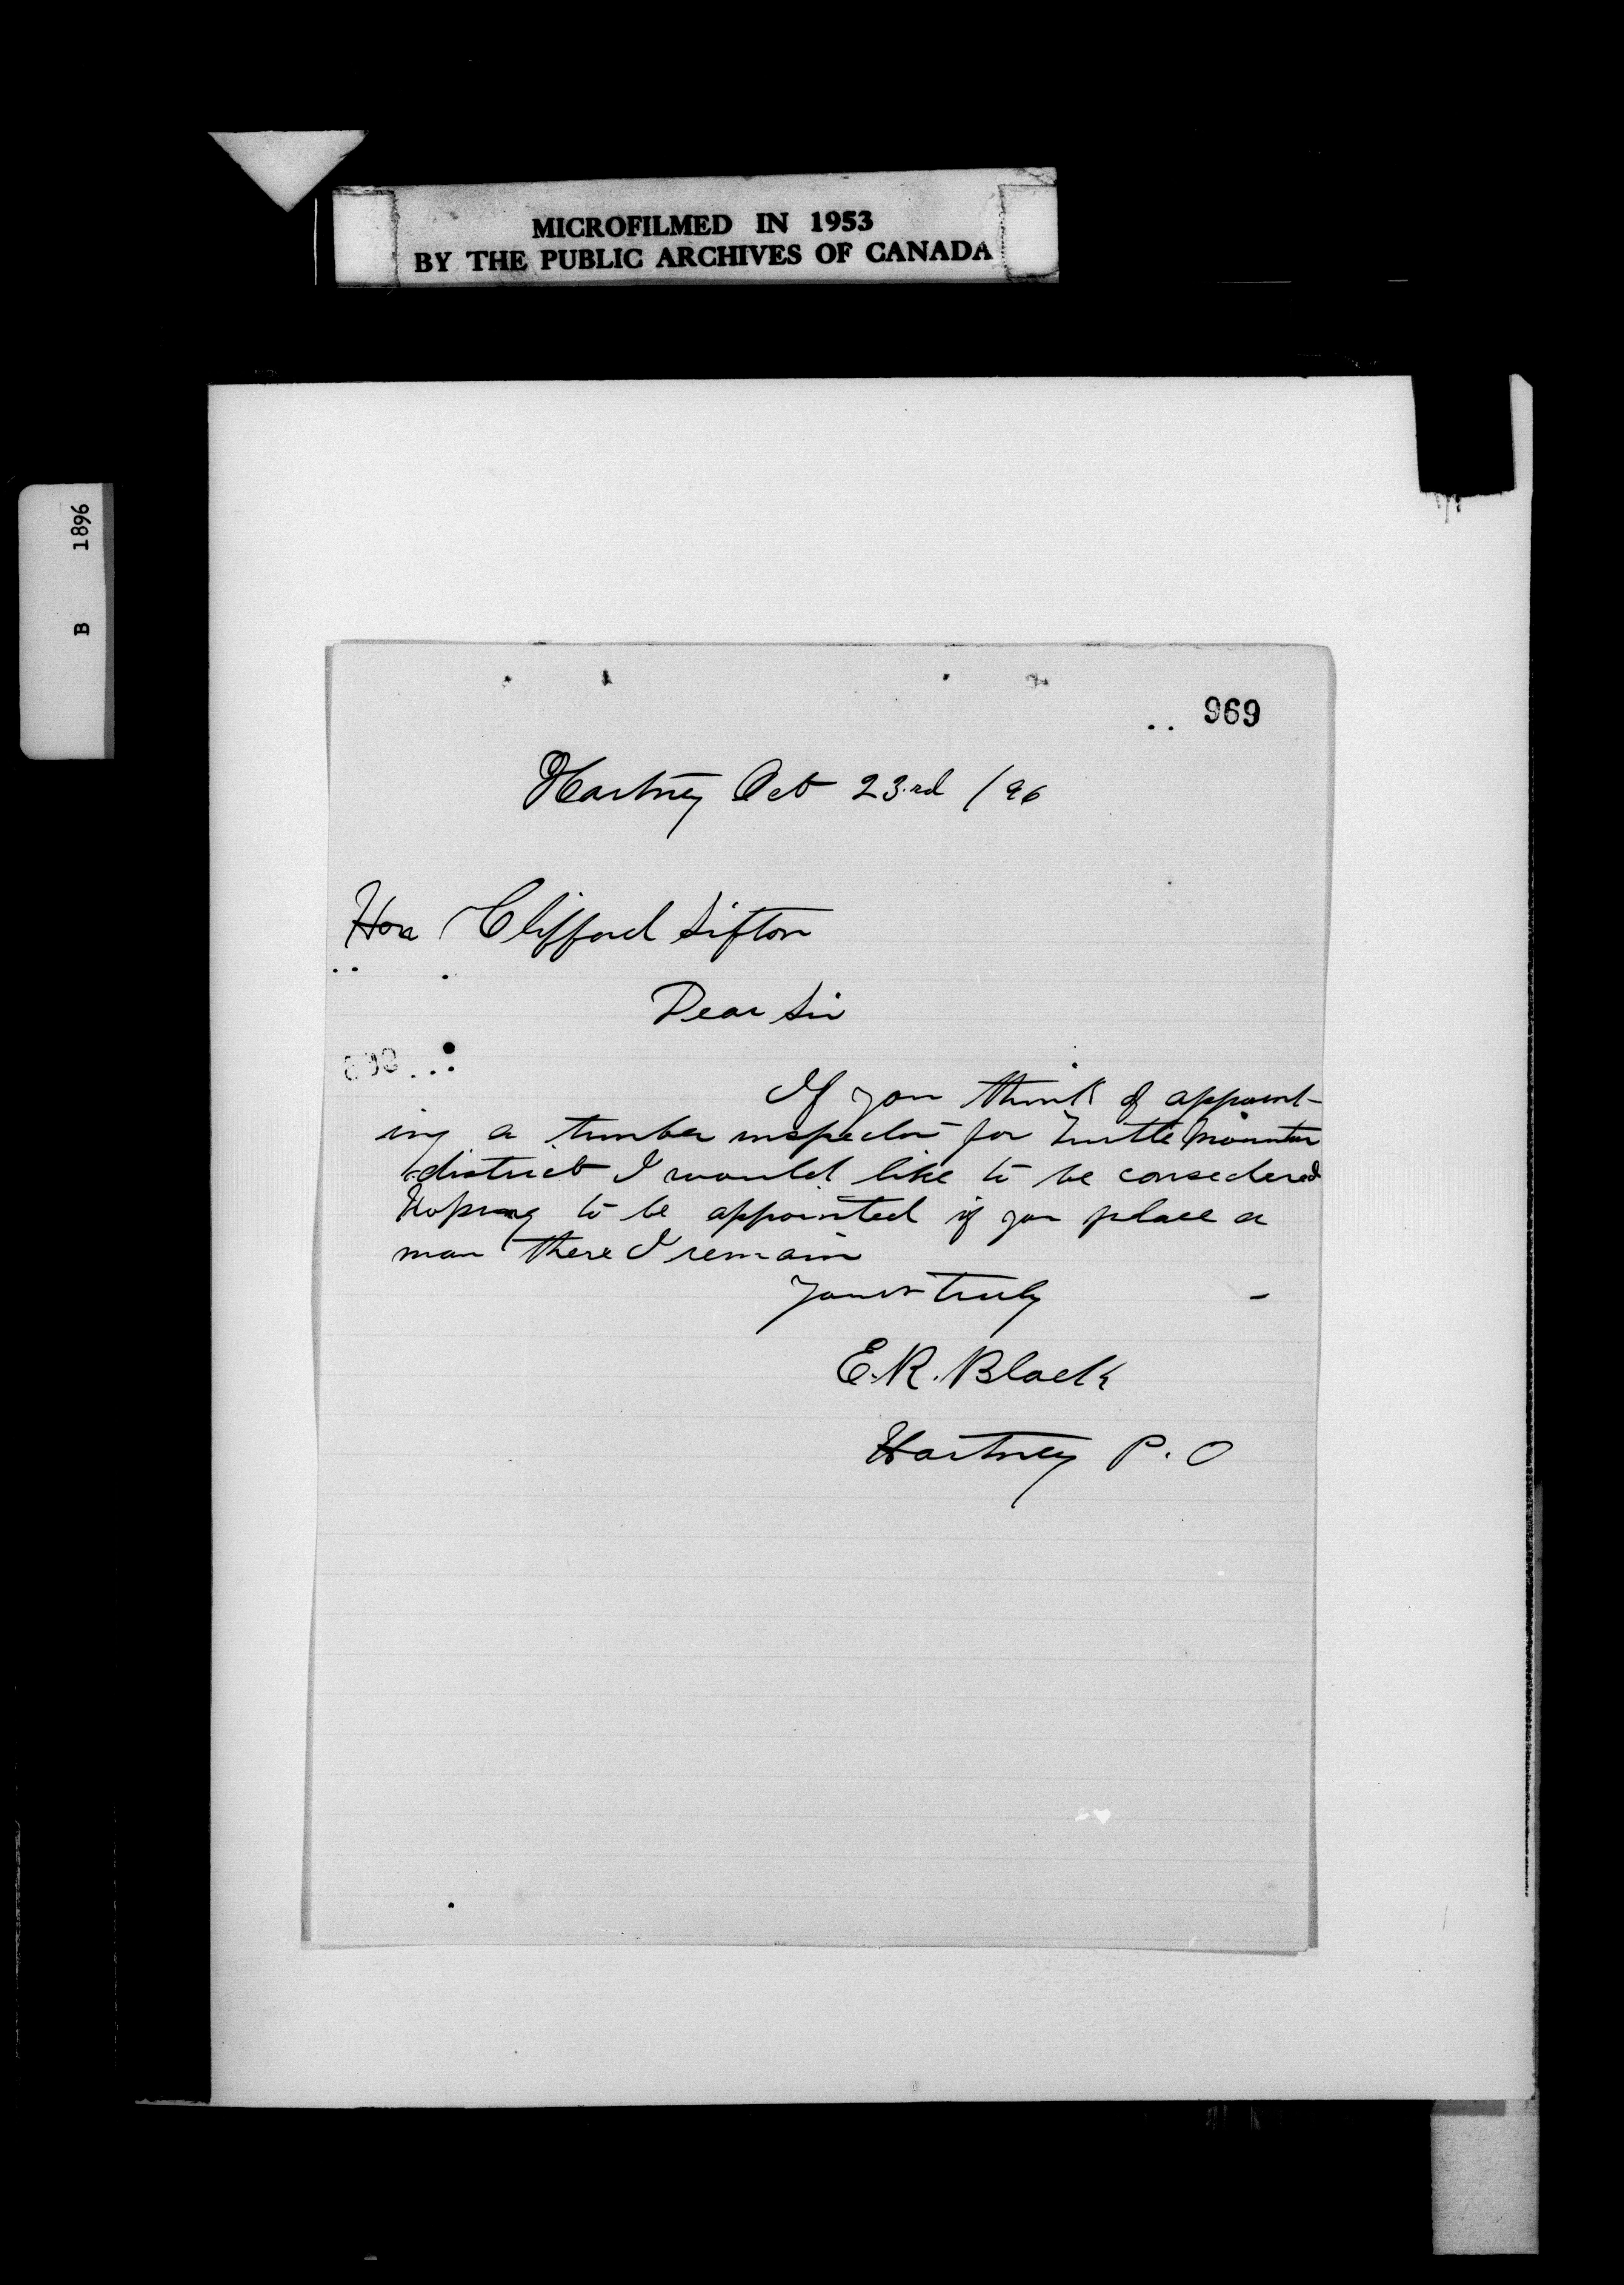 MICROFILMED IN 1953
BY THE PUBLIC ARCHIVES OF CANADA
B 1896
969
Hartney Oct 23.rd /96
Hon Clifford Sifton
Dear Sir
If you think of appoint-
ing a timber inspector for Turtle Mountain
district I would like to be considered
Hoping to be appointed if you place a
man there I remain
Yours truly
E.R. Black
Hartney P.O